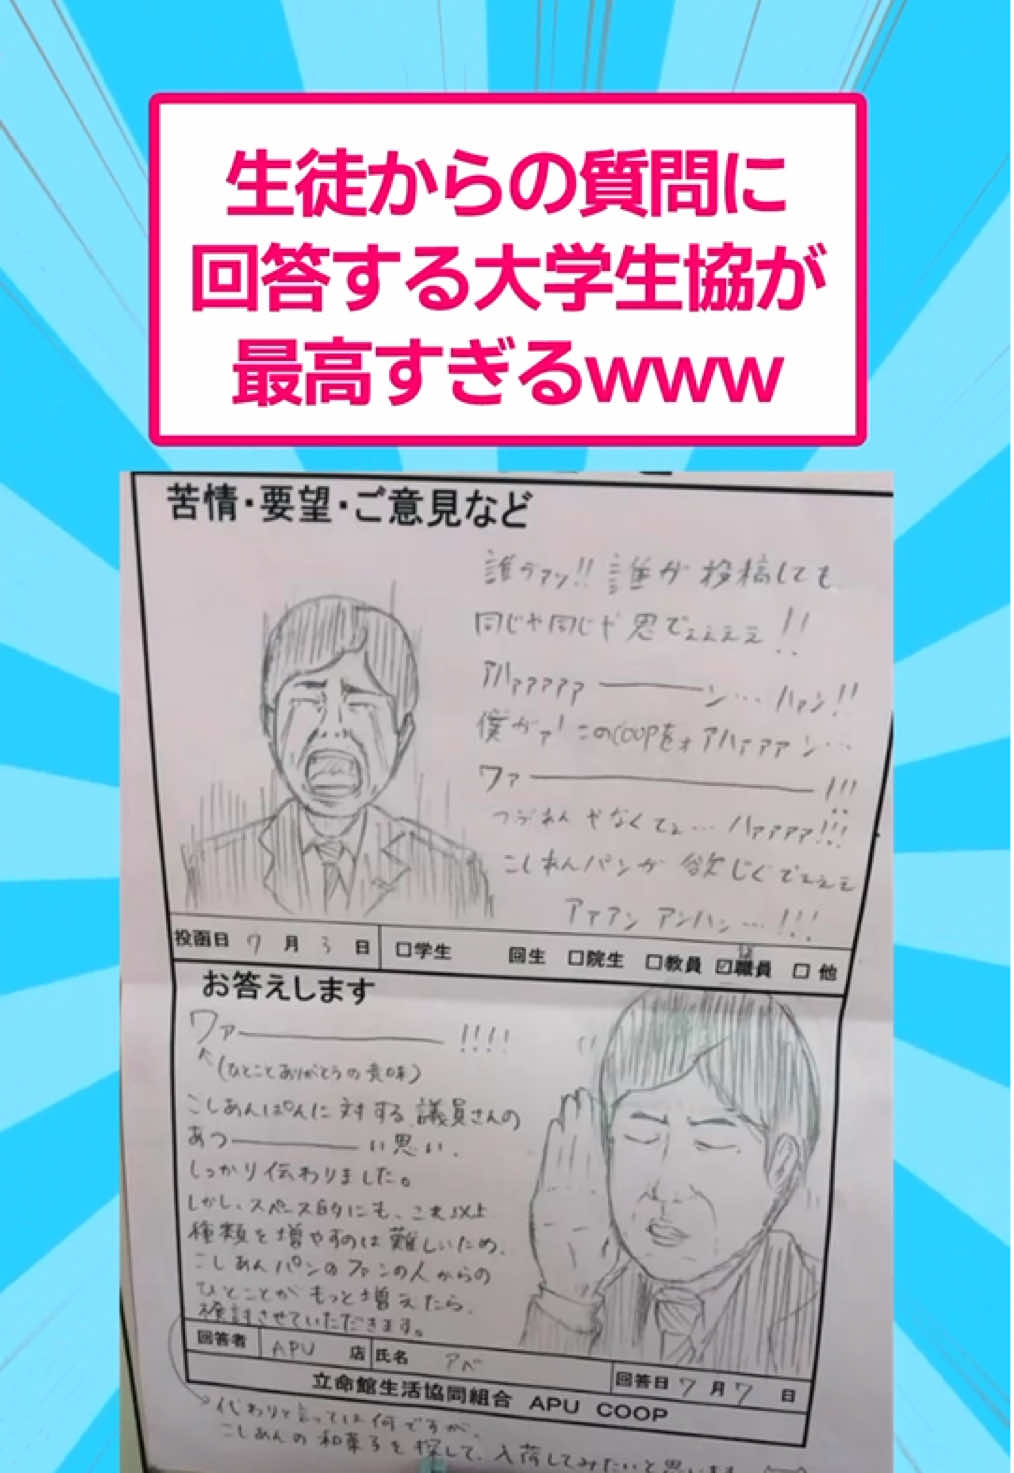 生徒からの質問に
回答する大学生協が
最高すぎるwww
苦情・要望・ご意見など
誰がァッ!! 誰が 投稿しても
同じや同じや思でェェェェ!!
アハァァァァァ————ン… ハァン!!
僕がァ! このCOOPをォ アハァァァァン…
ワァ————————————!!!
つぶあんやなくてェ… ハァァァァ!!!
こしあんパンが 欲じぐでェェェ
アァアン アンハン…!!!
投函日 7 月 3 日 □学生 回生 □院生 □教員 ☑職員 □ 他
お答えします
ワァ————————!!!!
(ひとことありがとうの意味)
こしあんぱんに対する議員さんの
あつ————い思い、
しっかり伝わりました。
しかし、スペース的にも、これ以上
種類を増やすのは難しいため、
こしあんパンのファンの人からの
ひとことがもっと増えたら、
検討させていただきます。
回答者 APU 店 氏名 アベ
回答日 7 月 7 日
立命館生活協同組合 APU COOP
代わりと言っては何ですが、
こしあんの和菓子を探して、入荷してみたいと思います